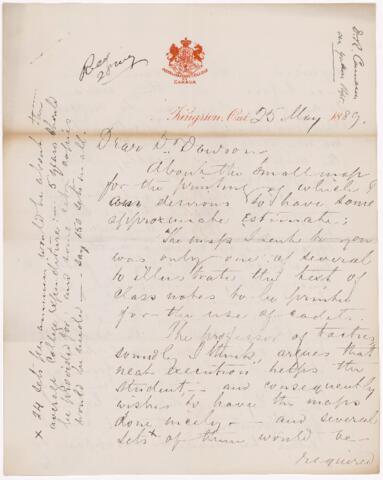 Recd
28 May
Royal Military College
of
Canada
Kingston, Ont 25 May 1889.
Dear Dr Dawson
About the small map
for the printing of which I
am desirous to have some
approximate estimate:
The map I sent to you
was only one of several
to illustrate the text of
class notes to be printed
for the use of cadets.
The professor of tactics
soundly I think, argues that
"neat execution" helps the
student - and consequently
wishes to have the maps
done nicely - and several
sets x of them would be
required
x 24 sets per annum would be about the
average College expenditure - 5 years should
be provided for and some extra copies
would be needed - say 150 sets in all.